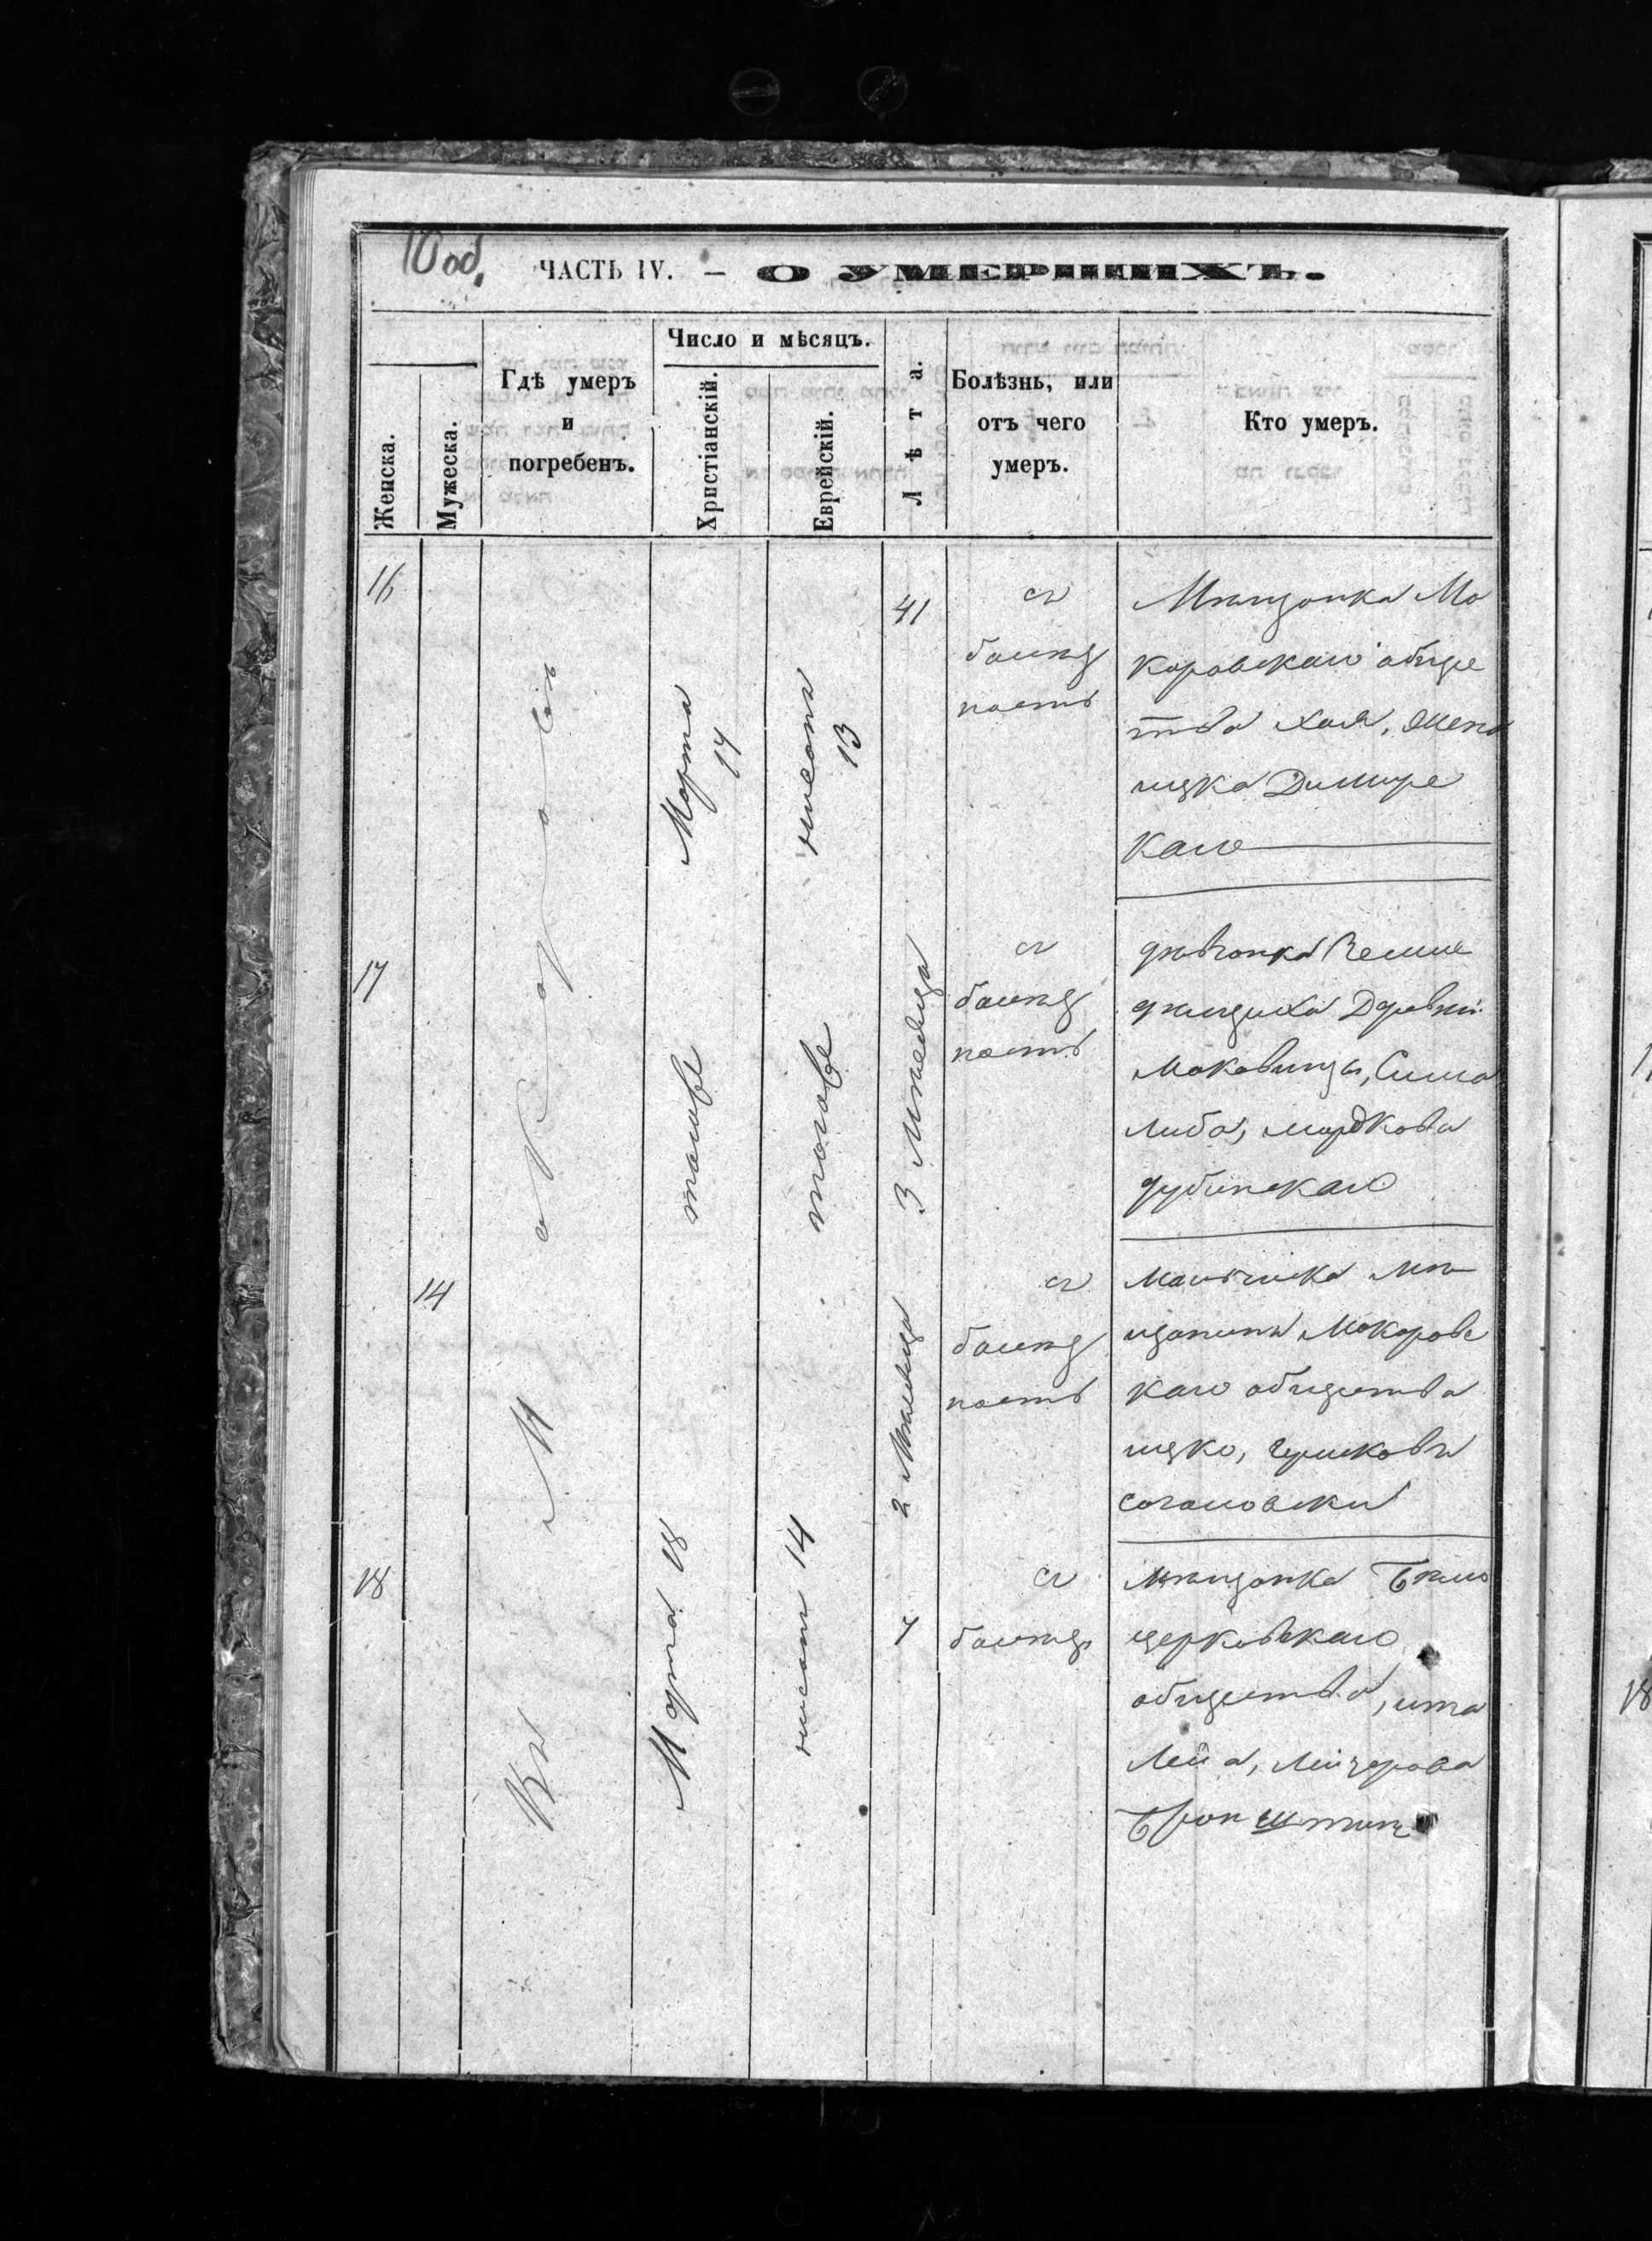 10 об.
ЧАСТЬ IV. — О УМЕРШИХЪ.
Женска.
Мужеска.
Гдѣ умеръ
и
погребенъ.
Число и мѣсяцъ.
Христіанскій.
Еврейскій.
Лѣта.
Болѣзнь, или
отъ чего
умеръ.
Кто умеръ.
Въ М Макаровѣ
16
Марта
17
нисана
13
41
съ
болѣз
ность
Мѣщанка Ма
каровскаго обще
тва Хая, жена
ицка Димире
каго
17
тогоже
тогоже
3 Мѣсяца
съ
болѣз
ность
дѣвчонка
Деревни
Маковищы, Сима
Либа, мордкова
дубинскаго
14
2 Мѣсяца
съ
болѣз
ность
Мальчика мѣ
щанинъ Макаровс
каго общества
ицко, гершковъ
18
Марта 18
нисана 14
7
съ
болѣз
Мѣщанка Бѣло
церковскаго
общества, ита
Лея, Лейзерова
Бронштинъ